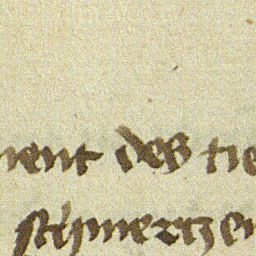 nent des tie
schmertzen